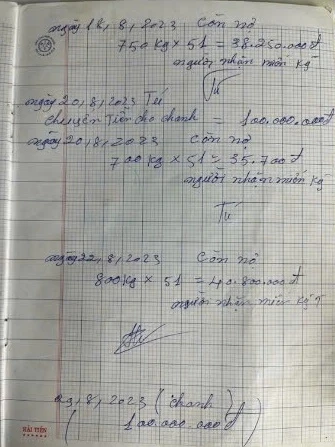 ngày 18, 8, 2023 còn nợ
750 kg x 51 = 38.250.000đ
người nhận miến ký
Tú
ngày 20, 8, 2023 Tú
chuyển tiền cho chanh = 100.000.000đ
ngày 20, 8, 2023 còn nợ
700 kg x 51 = 35.700đ
người nhận miến ký
Tú
ngày 22, 8, 2023 còn nợ
800 kg x 51 = 40.800.000đ
người nhận miến ký
8, 2023 ( chanh )
( 100.000.000đ
HẢI TIẾN